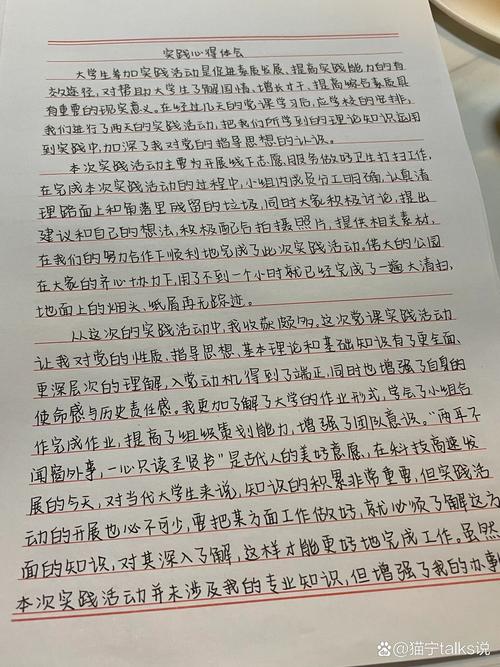 实践心得体会
大学生参加实践活动是促进素质发展、提高实践能力的有
效途径，对帮助大学生了解国情，增长才干，提高综合素质具
有重要的现实意义。在经过几天的党课学习后，应学校的安排，
我们进行了两天的实践活动，把我们所学到的理论知识运用
到实践中，加深了我对党的指导思想的认识。
本次实践活动主要为开展线下志愿服务做好卫生打扫工作，
在完成本次实践活动的过程中，小组内成员分工明确，认真清
理路面上和角落里残留的垃圾，同时大家积极讨论，提出
建议和自己的想法，积极配合拍摄照片，提供相关素材，
在我们的努力合作下顺利地完成了此次实践活动，偌大的公园
在大家的齐心协力下，用了不到一个小时就已经完成了一遍大清扫，
地面上的烟头、纸屑再无踪迹。
从这次的实践活动中，我收获颇多。这次党课实践活动
让我对党的性质、指导思想、基本理论和基础知识有了更全面、
更深层次的理解，入党动机得到了端正，同时也增强了自身的
使命感与历史责任感。我更加了解了大学的作业形式，学会了小组合
作完成作业，提高了组织策划能力，增强了团队意识。“两耳不
闻窗外事，一心只读圣贤书”是古代人的美好意愿，在科技高速发
展的今天，对当代大学生来说，知识的积累非常重要，但实践活
动的开展也必不可少，要把某方面工作做好，就必须了解这方
面的知识，对其深入了解，这样才能更好地完成工作。虽然
本次实践活动并未涉及我的专业知识，但增强了我的办事
@猫宁talks说